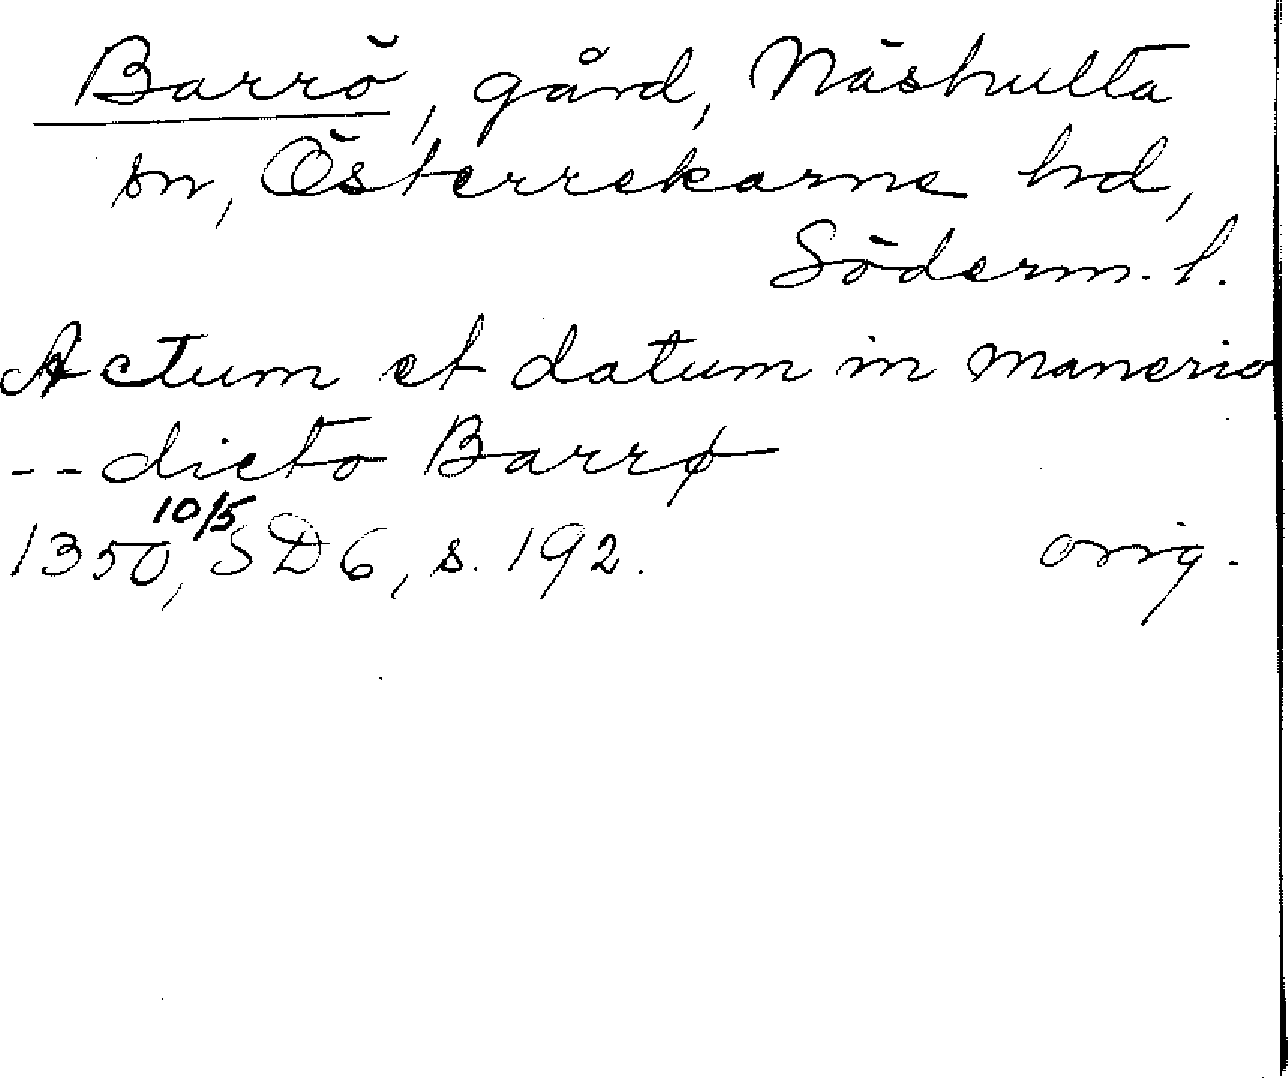 Barrö, gård, Näshulta
sn, Österrekarne hd,
Söderm. l.
Actum et datum in manerio
-- dicto Barrø
1350 10/5, SD 6, s. 192. orig.